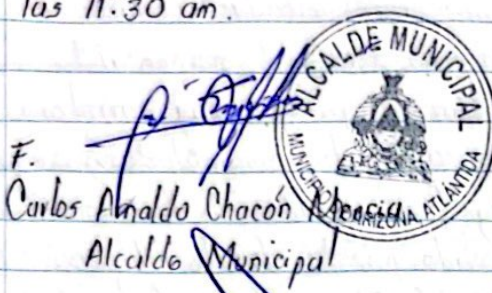 las 11.30 am.
ALCALDE MUNICIPAL
MUNICIPIO ARIZONA, ATLÁNTIDA
F.
Carlos Arnaldo Chacón
Alcalde Municipal